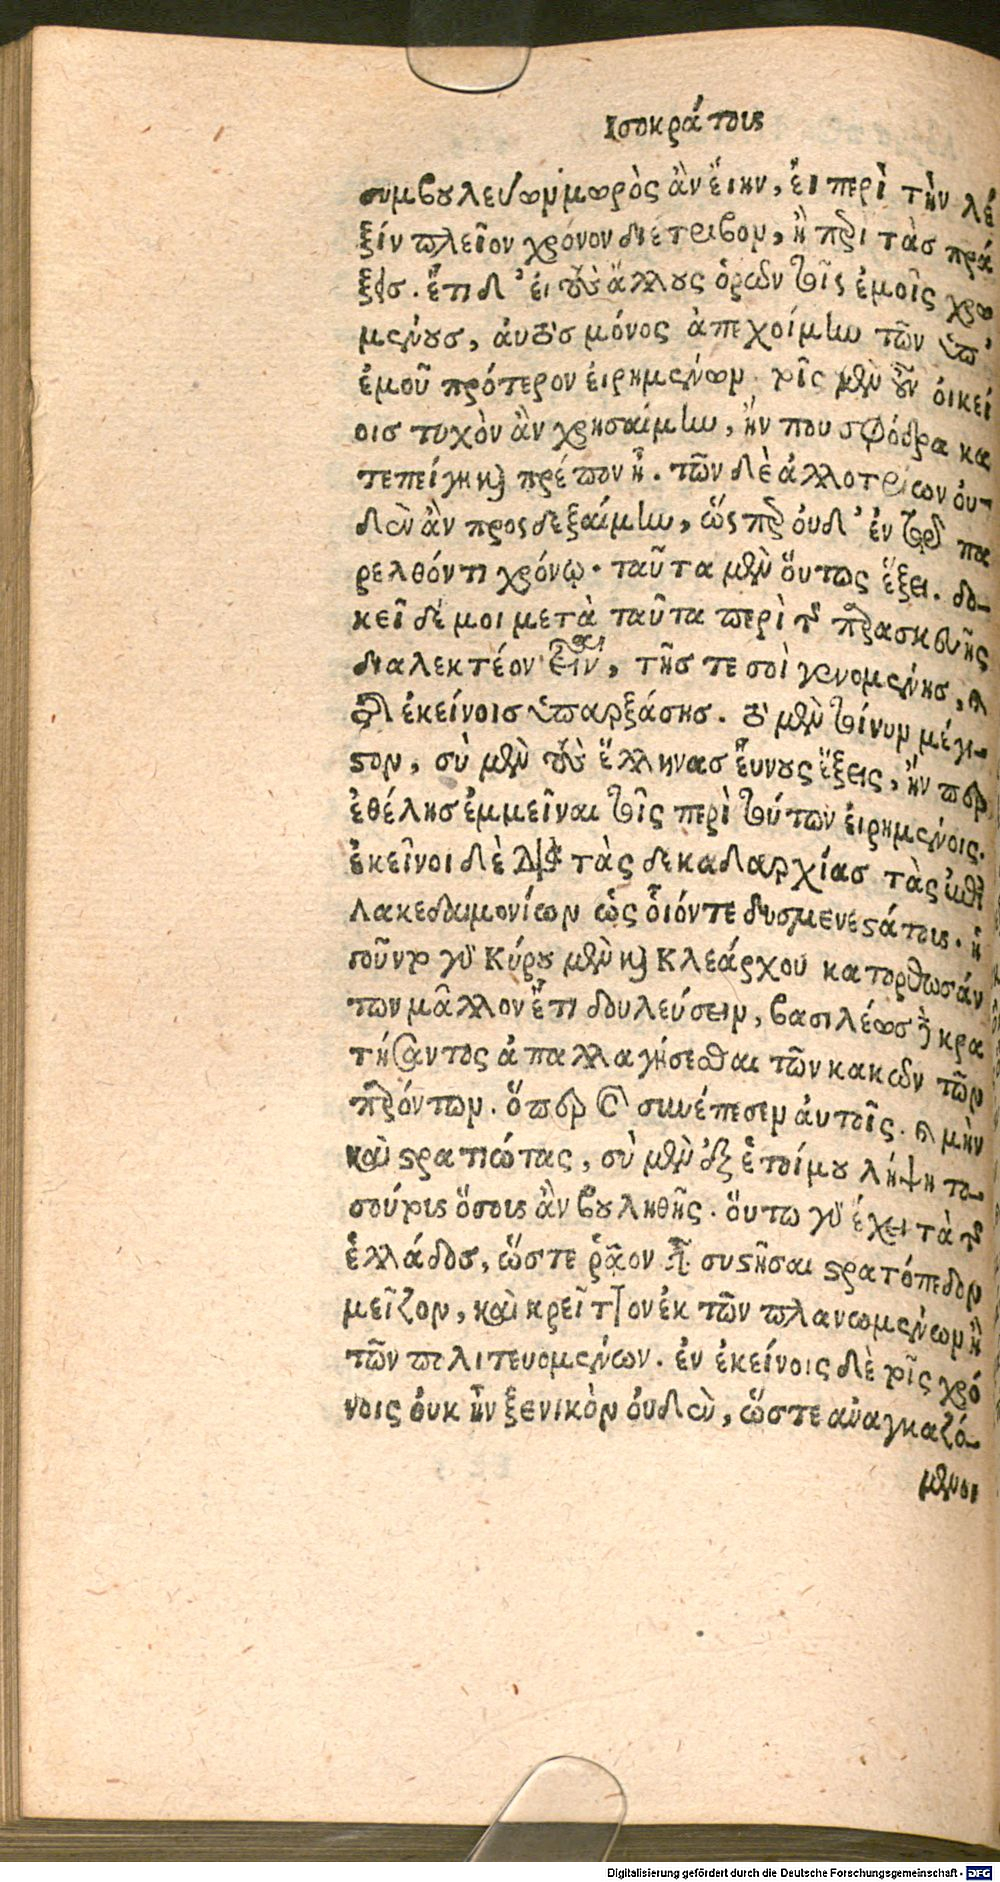 Ισοκράτους
συμβουλεύωνμωρὸς ἂν ἔιην, ἐι περὶ τὴν λέ
ξίν πλεῖον χρόνον διέτριβον, ἢ περὶ τὰσ πρά
ξεισ. ἔτι δ' ἐι τοὺς ἄλλους ὁρῶν τοῖς ἐμοῖς χρω
μένουσ, ἀυτὸσ μόνος ἀπεχοίμην τῶν ὑπ'
ἐμοῦ πρότερον ἐιρημένων. τοῖς μὲν οὖν ὀικεί
οισ τυχὸν ἂν χρησαίμην, ἤν που σφόδρα κα
τεπείγῃ καὶ πρέπον ᾖ. τῶν δὲ ἀλλοτρίων ὀυ-
δὲν ἂν προσδεξαίμην, ὥςπερ ὀυδ' ἐν τῷ πα
ρελθόντι χρόνῳ. ταῦτα μὲν ὅυτως ἕξει. δο-
κεῖ δέ μοι μετὰ ταῦτα περὶ τῆς παρασκευῆς
διαλεκτέον εἶναι, τῆσ τε σοὶ γενομένησ, καὶ
τῆς ἐκείνοισ ὑπαρξάσησ. τὸ μὲν τοίνυν μέγι-
στον, σὺ μὲν τοὺς ἕλληνασ ἔυνους ἕξεις, ἤν περ
ἐθέλησ ἐμμεῖναι τοῖς περὶ τούτων ἐιρημένοις.
ἐκεῖνοι δὲ διὰ τὰς δεκαδαρχίασ τὰς ἐπὶ
Λακεδαιμονίων ὡς ὁιόντε δυσμενεστάτους. ἡ
γοῦντο γὰρ Κύρου μὲν καὶ Κλεάρχου κατορθωσάν
των μᾶλλον ἔτι δουλεύσειν, βασιλέωσ δὲ κρα
τήσαντος ἀπαλλαγήσεσθαι τῶν κακῶν τῶν
παρόντων. ὅπερ καὶ συνέπεσεν ἀυτοῖς. καὶ μὴν
καὶ στρατιώτας, σὺ μὲν ἐξ ἑτοίμου λήψῃ το-
σούτους ὅσους ἂν βουληθῇς. ὅυτω γὰρ ἔχει τὰ τῆς
ἑλλάδοσ, ὥστε ῥᾷον εἶναι συστῆσαι στρατόπεδον
μεῖζον, καὶ κρεῖττον ἐκ τῶν πλανωμένων ἢ
τῶν πολιτευομένων. ἐν ἐκείνοις δὲ τοῖς χρό
νοις ὀυκ ἦν ξενικὸν ὀυδὲν, ὥστε αναγκαζό-
μενοι
Digitalisierung gefördert durch die Deutsche Forschungsgemeinschaft - DFG